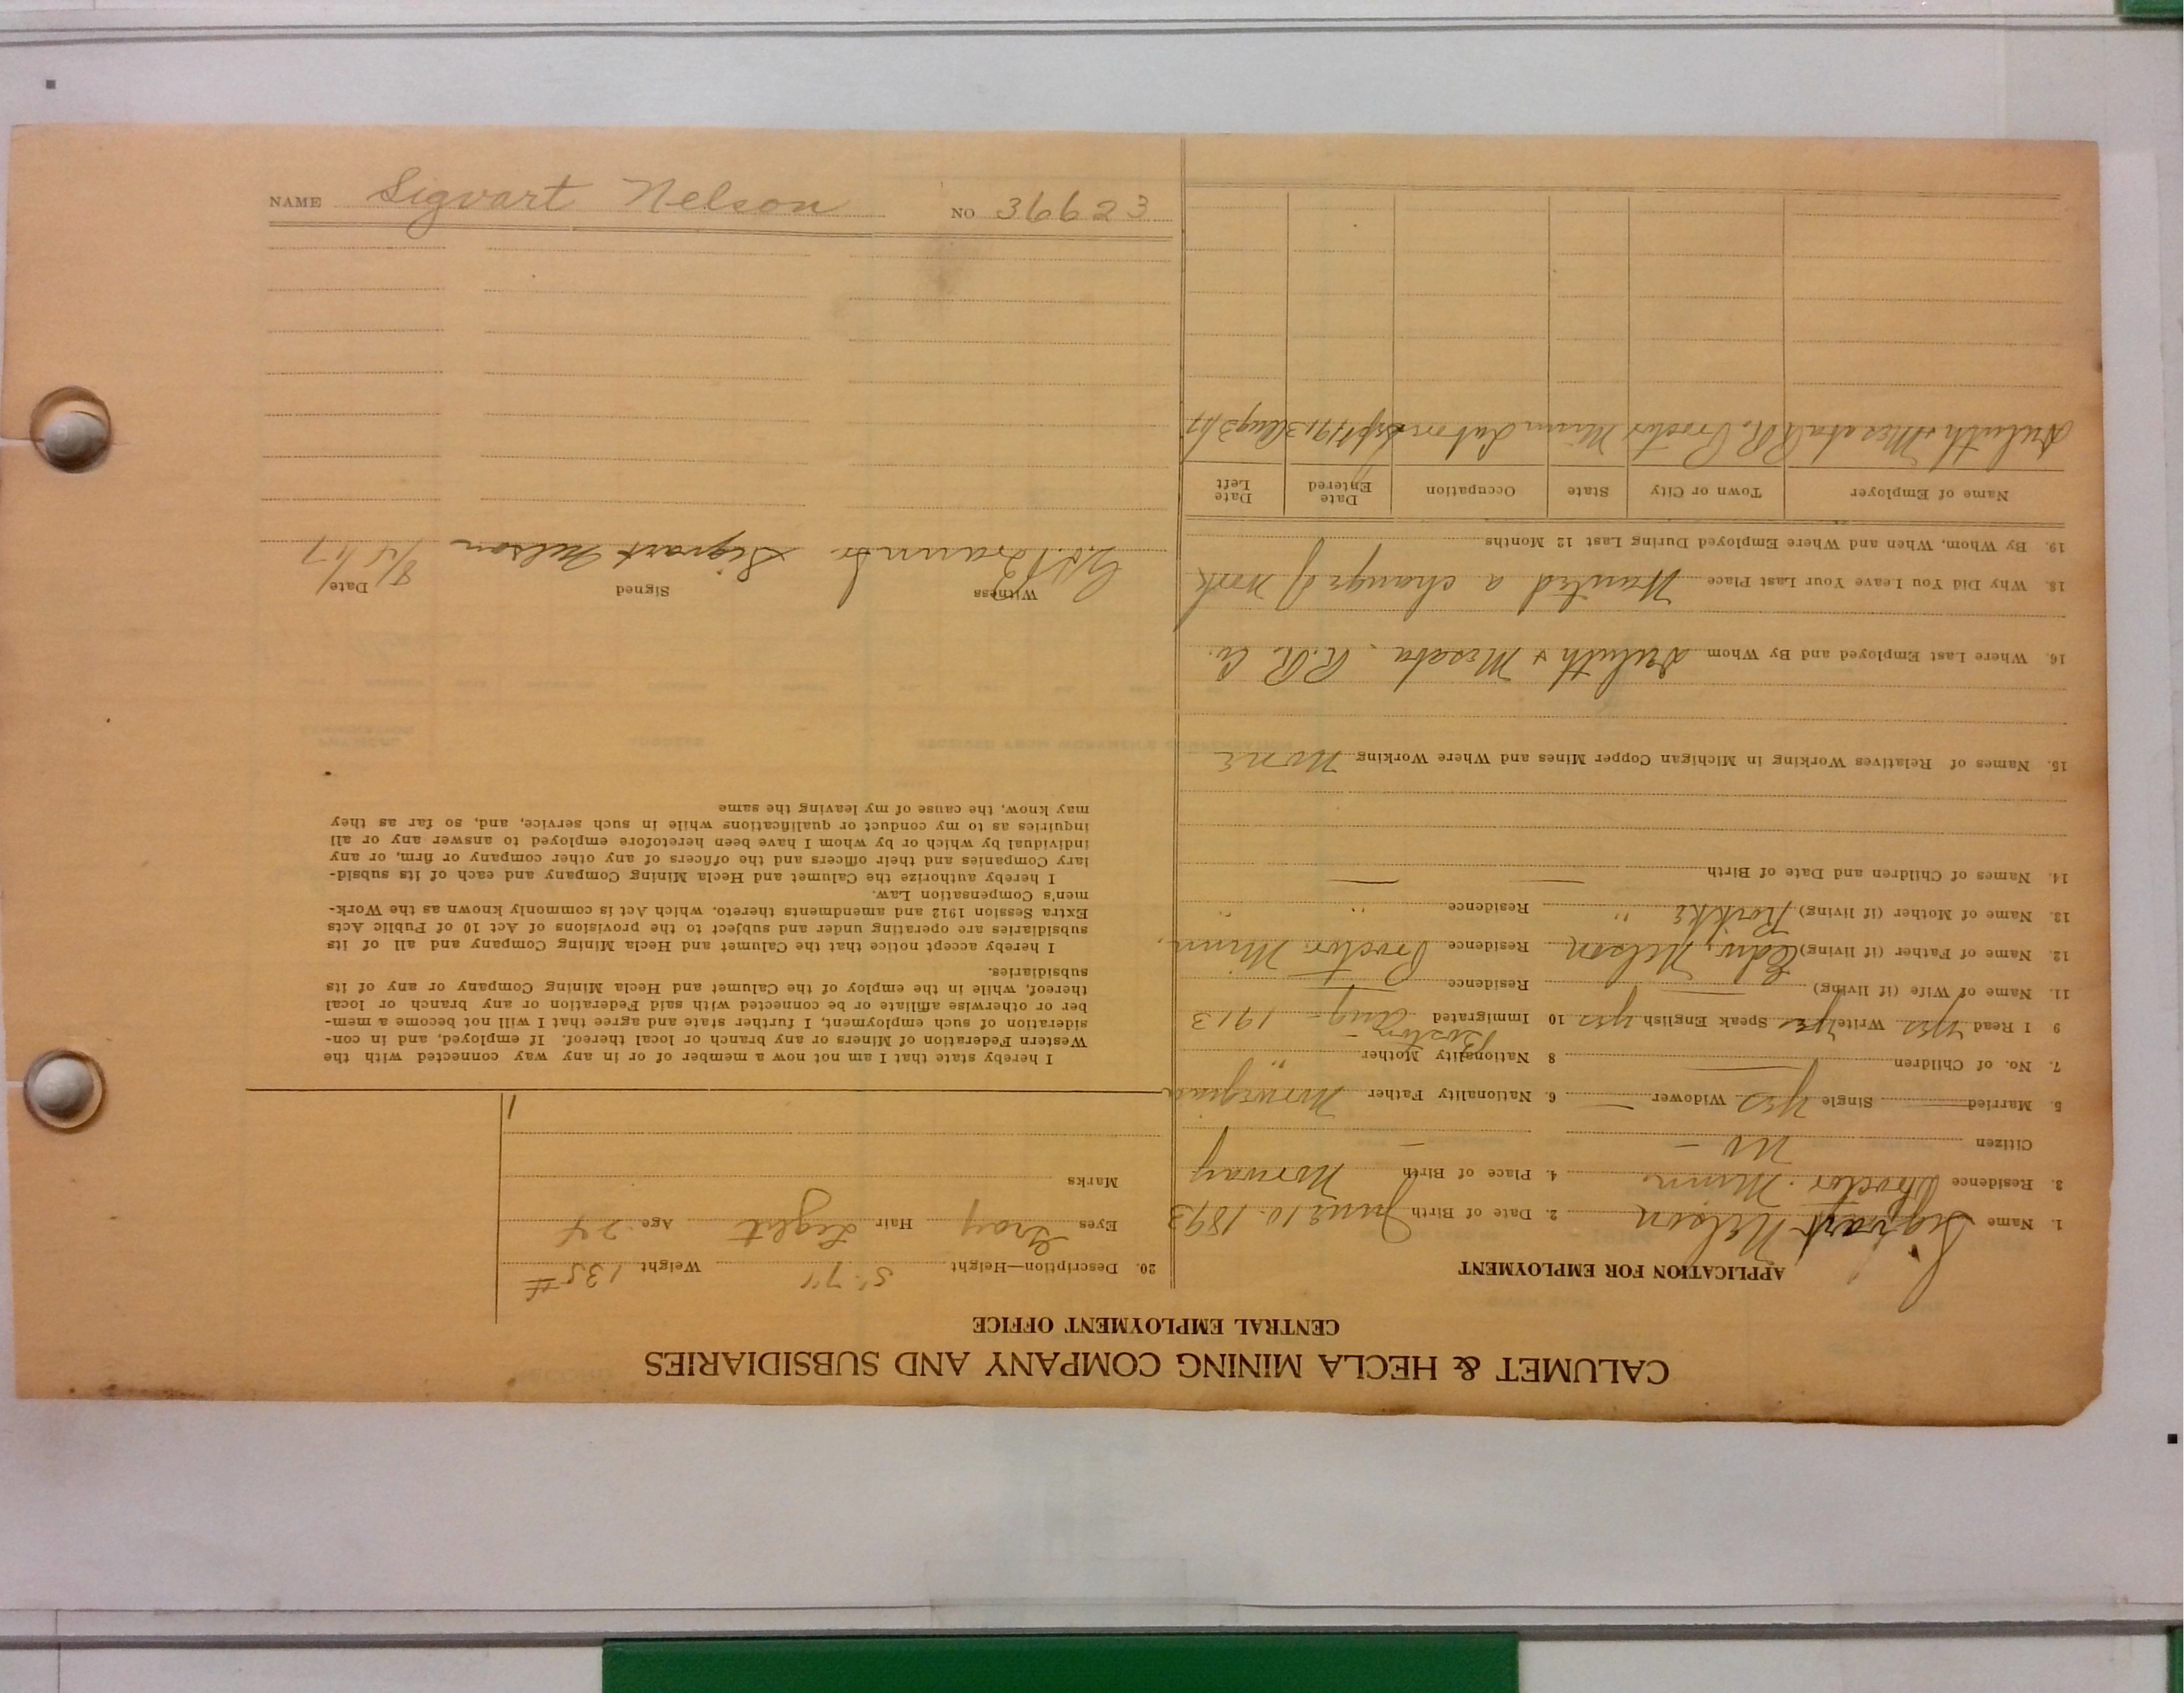 CALUMET & HECLA MINING COMPANY AND SUBSIDIARIES
CENTRAL EMPLOYMENT OFFICE
APPLICATION FOR EMPLOYMENT
1. Name Sigvart Nelson 2. Date of Birth June 10. 1893
3. Residence Proctor. Minn. 4. Place of Birth Norway
Citizen No –
5. Married Single yes Widower 6. Nationality Father Norwegian
7. No. of Children 8 Nationality Mother "
9 I Read yes Write yes Speak English yes 10 Immigrated Boston – Aug – 1913
11. Name of Wife (if living) Residence
12. Name of Father (if living) Edw. Nelson Residence Proctor Minn.
13. Name of Mother (if living) " Residence " "
14. Names of Children and Date of Birth
15. Names of Relatives Working in Michigan Copper Mines and Where Working None
16. Where Last Employed and By Whom Duluth & Mesaba R.R. Co.
18. Why Did You Leave Your Last Place Wanted a change of work
19. By Whom, When and Where Employed During Last 12 Months
Name of Employer Town or City State Occupation Date Entered Date Left
Duluth & Mesaba R.R. Proctor Minn Labor Sept 1913 Aug 3/17
20. Description—Height 5' 7" Weight 135 #
Eyes Gray Hair Light Age 24
Marks
I hereby state that I am not now a member of or in any way connected with the
Western Federation of Miners or any branch or local thereof. If employed, and in con-
sideration of such employment, I further state and agree that I will not become a mem-
ber or otherwise affiliate or be connected with said Federation or any branch or local
thereof, while in the employ of the Calumet and Hecla Mining Company or any of its
subsidiaries.
I hereby accept notice that the Calumet and Hecla Mining Company and all of its
subsidiaries are operating under and subject to the provisions of Act 10 of Public Acts
Extra Session 1912 and amendments thereto, which Act is commonly known as the Work-
men's Compensation Law.
I hereby authorize the Calumet and Hecla Mining Company and each of its subsid-
iary Companies and their officers and the officers of any other company or firm, or any
individual by which or by whom I have been heretofore employed to answer any or all
inquiries as to my conduct or qualifications while in such service, and, so far as they
may know, the cause of my leaving the same
Witness Signed Date
Sigvart Nelson
NAME Sigvart Nelson NO 36623